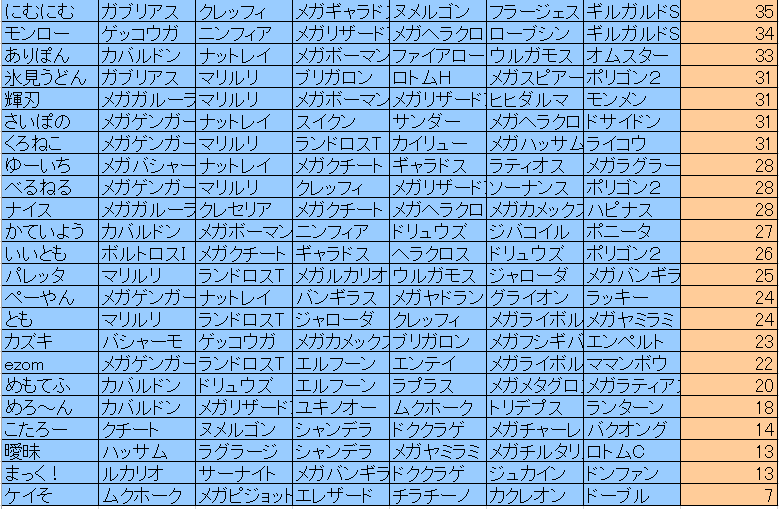 にむにむ ガブリアス クレッフィ メガギャラド ヌメルゴン フラージェス ギルガルドS 35
モンロー ゲッコウガ ニンフィア メガリザード メガヘラクロ ローブシン ギルガルドS 34
ありぽん カバルドン ナットレイ メガボーマン ファイアロー ウルガモス オムスター 33
氷見うどん ガブリアス マリルリ ブリガロン ロトムH メガスピアー ポリゴン2 31
輝刃 メガガルーラ マリルリ メガボーマン メガリザード ヒヒダルマ モンメン 31
さいぽの メガゲンガー ナットレイ スイクン サンダー メガヘラクロ ドサイドン 31
くろねこ メガゲンガー マリルリ ランドロスT カイリュー メガハッサム ライコウ 31
ゆーいち メガバシャー ナットレイ メガクチート ギャラドス ラティオス メガラグラー 28
べるねる メガゲンガー マリルリ クレッフィ メガリザード ソーナンス ポリゴン2 28
ナイス メガガルーラ クレセリア メガクチート メガヘラクロ メガカメックス ハピナス 28
かていよう カバルドン メガボーマン ニンフィア ドリュウズ ジバコイル ポニータ 27
いいとも ボルトロスI メガクチート ギャラドス ヘラクロス ドリュウズ ポリゴン2 26
パレッタ マリルリ ランドロスT メガルカリオ ウルガモス ジャローダ メガバンギラ 25
ペーやん メガゲンガー ナットレイ バンギラス メガヤドラン グライオン ラッキー 24
とも マリルリ ランドロスT ジャローダ クレッフィ メガライボル メガヤミラミ 24
カズキ バシャーモ ゲッコウガ メガカメックス ブリガロン メガフシギバ エンペルト 23
ezom メガゲンガー ランドロスT エルフーン エンテイ メガライボル ママンボウ 22
めもてふ カバルドン ドリュウズ エルフーン ラプラス メガメタグロ メガラティア 20
めろ～ん カバルドン メガリザード ユキノオー ムクホーク トリデプス ランターン 18
こたろー クチート ヌメルゴン シャンデラ ドククラゲ メガチャーレ バクオング 14
曖昧 ハッサム ラグラージ シャンデラ メガヤミラミ メガチルタリ ロトムC 13
まっく！ ルカリオ サーナイト メガバンギラ ドククラゲ ジュカイン ドンファン 13
ケイそ ムクホーク メガピジョット エレザード チラチーノ カクレオン ドーブル 7